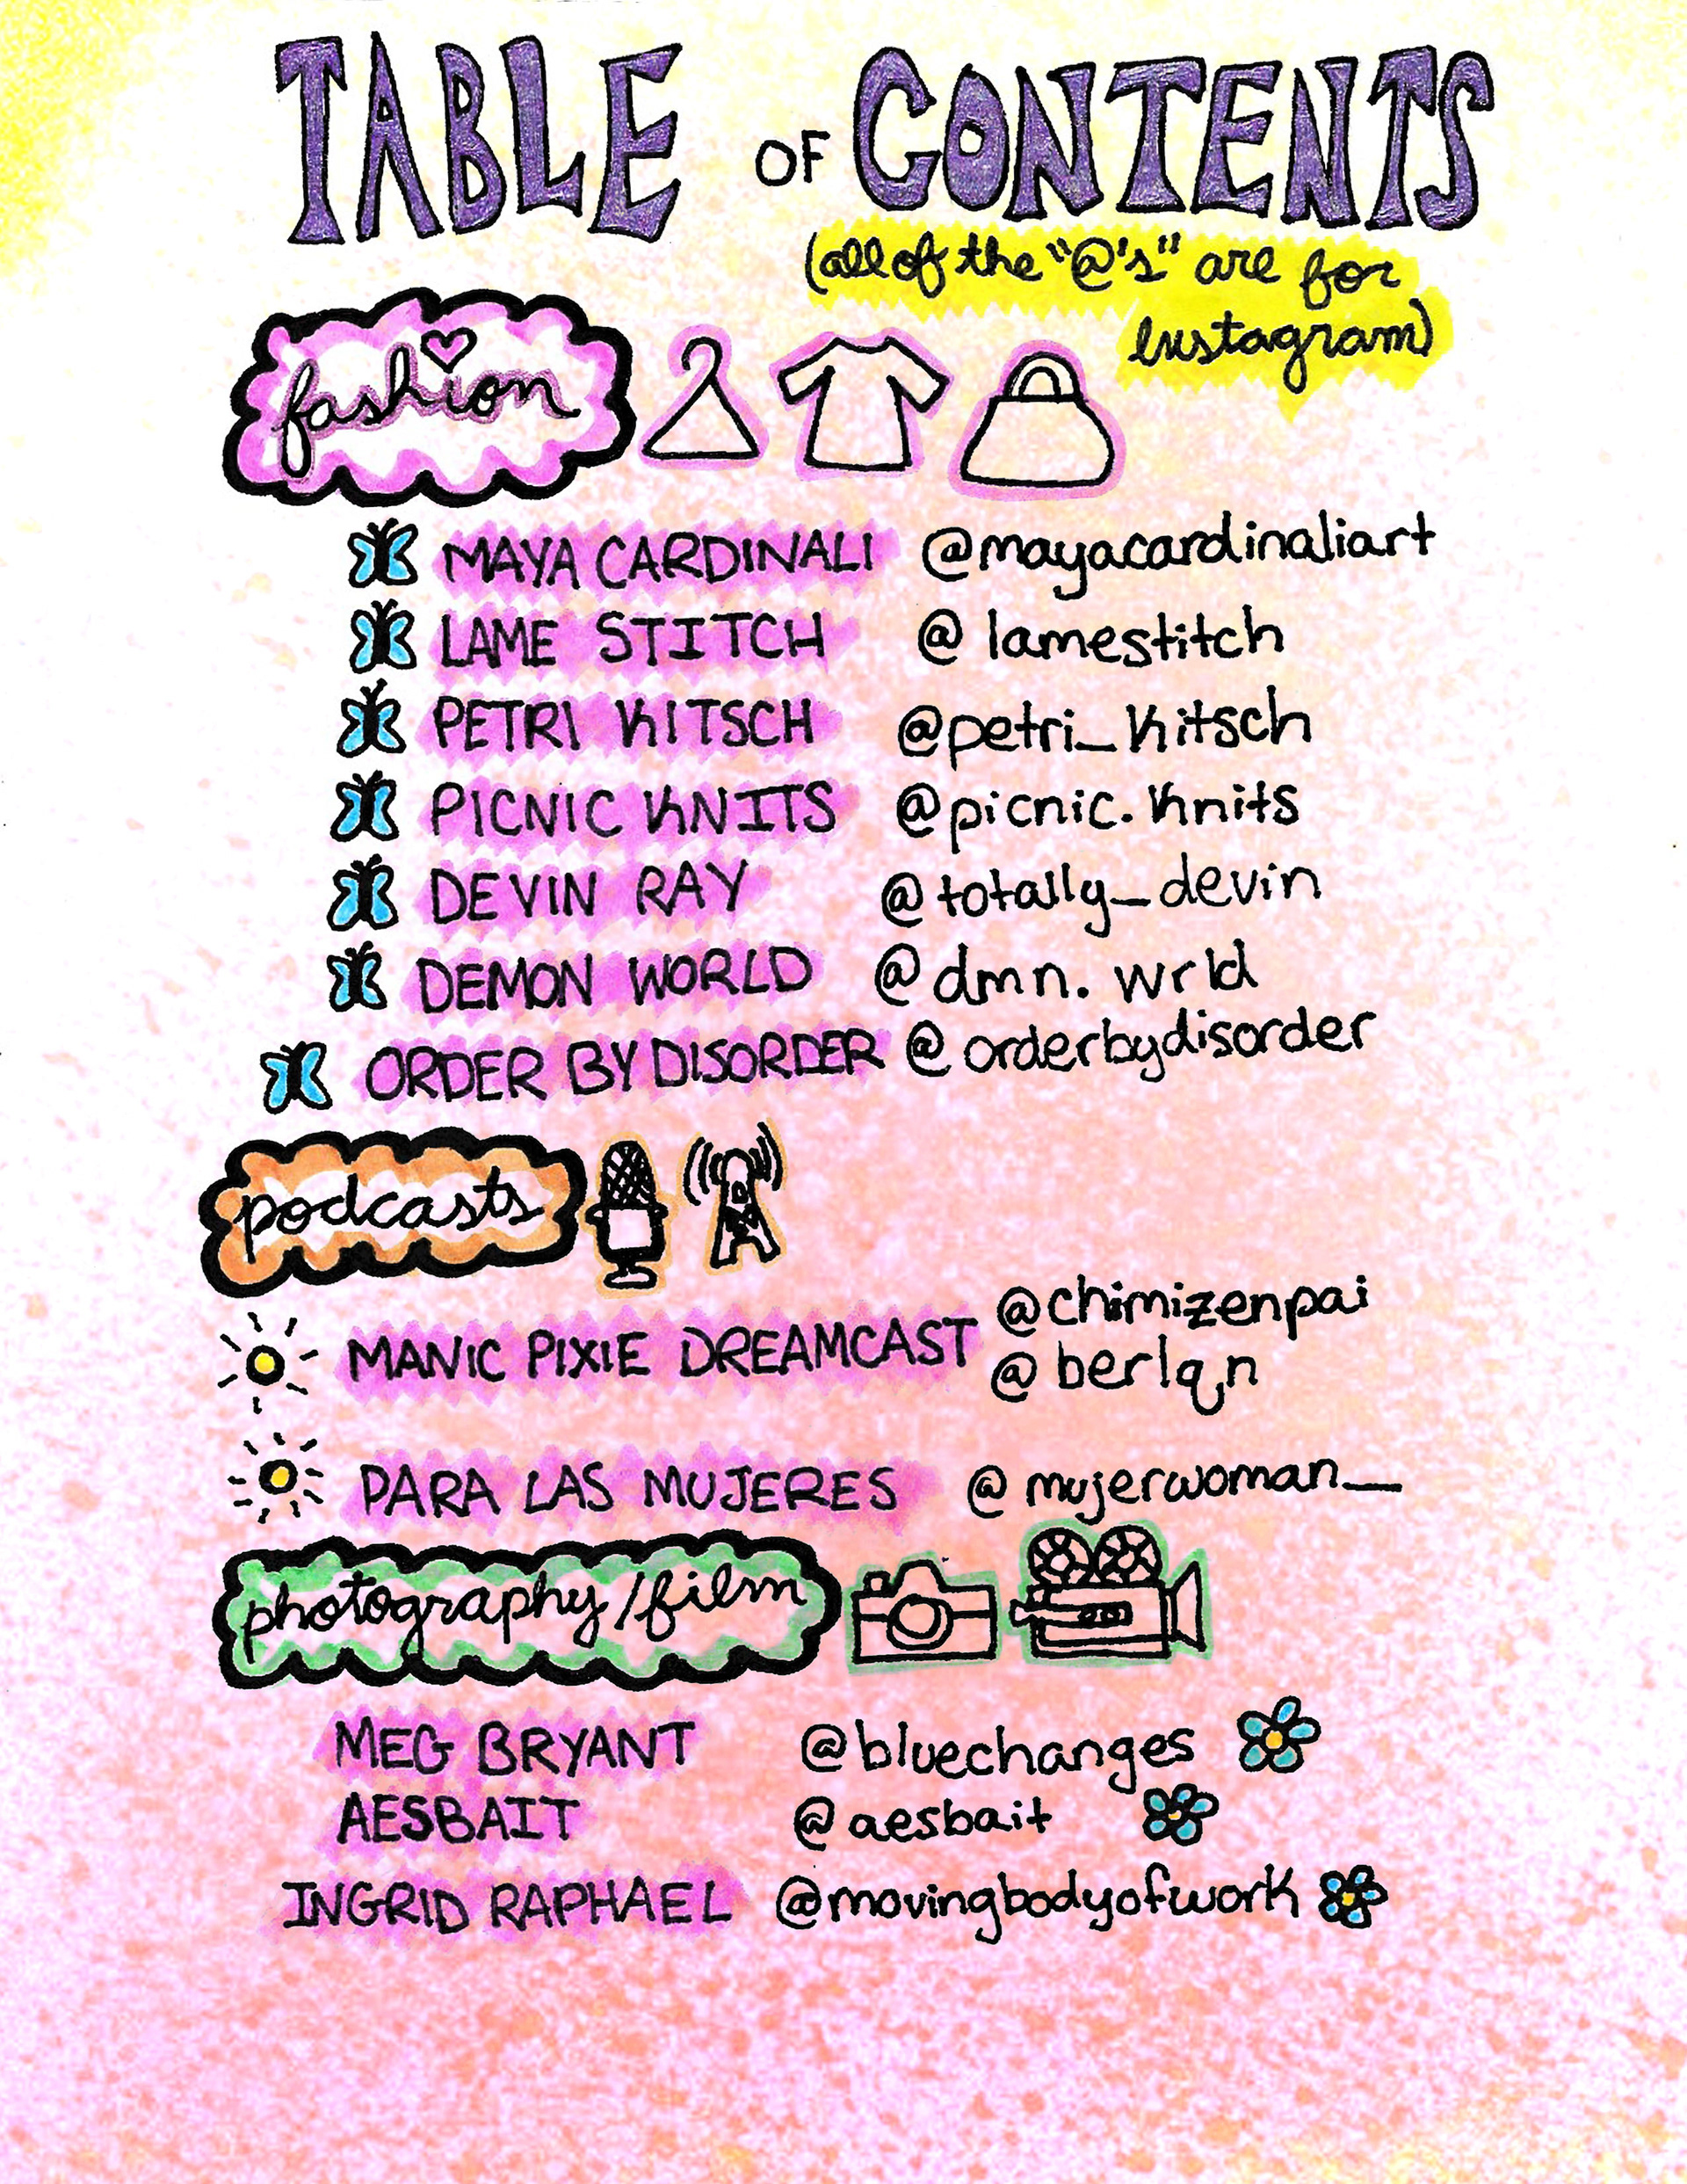 TABLE OF CONTENTS
(all of the "@'s" are for
Instagram)
fashion
MAYA CARDINALI @mayacardinaliart
LAME STITCH @lamestitch
PETRI KITSCH @petri_kitsch
PICNIC KNITS @picnic.knits
DEVIN RAY @totally_devin
DEMON WORLD @dmn.wrld
ORDER BY DISORDER @orderbydisorder
podcasts
MANIC PIXIE DREAMCAST @chimizenpai
@berlq,n
PARA LAS MUJERES @mujerwoman_
photography/film
MEG BRYANT @bluechanges
AESBAIT @aesbait
INGRID RAPHAEL @movingbodyofwork